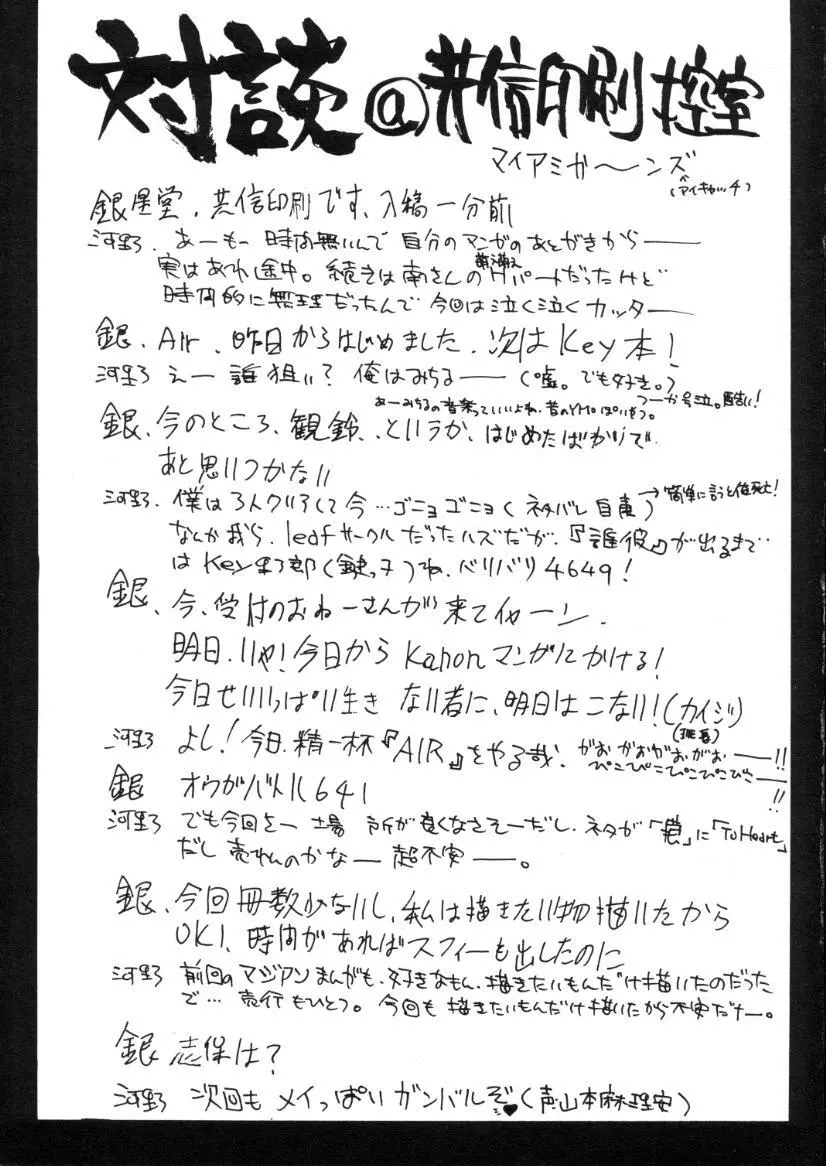 対談@共信印刷控室
マイアミガ〜ンズ
(アイキャッチ)
銀星堂、共信印刷です、入稿一分前
河野、あーもー時間無いんで自分のマンガのあとがきから——
実はあれ途中。続きは南さんの萌 Hパートだったけど
時間的に無理だったんで今回は泣く泣くカッター——
銀、Air、昨日からはじめました、次はKey本!
河野 えー誰狙い?俺はみちる——(嘘。でも好き。)
つーか号泣。酷い!
あーみちるの音楽っていいよね、昔のYMOっぽい
銀、今のところ、観鈴、というか、はじめたばかりで
あと思いつかない
河野、僕は3人クリアして今…ゴニョゴニョ(ネタバレ自粛)→簡単に言うと俺死亡!
なんか我ら、leafサークルだったハズだが、『誰彼』が出るまで
はKey野郎(鍵っ子)ね、バリバリ4649!
銀、今、受付のおねーさんが来てイヤーン、
明日、いや!今日からKanonマンガにかける!
今日せいいっぱい生きない者に、明日はこない!(カイジ)
(班長)
河野 よし!今日、精一杯『AIR』をやる哉、がおがおがおがお——!!
ぴこぴこぴこぴこぴこ——!!
銀 オウガバトル64!
河野 でも今回さー 場所が良くなさそーだし、ネタが「誰」に「ToHeart」
だし売れんのかなー 超不安——。
銀、今回冊数少ないし、私は描きたい物描いたから
OK!、時間があればスフィーも出したのに
河野 前回のマジアンまんがも、好きなもん、描きたいもんだけ描いたのだった
で…売行もひとつ。今回も描きたいもんだけ描いたから不安だナー。
銀 志保は?
河野 次回もメイっぱいガンバルぞ♥(声山本麻理安)